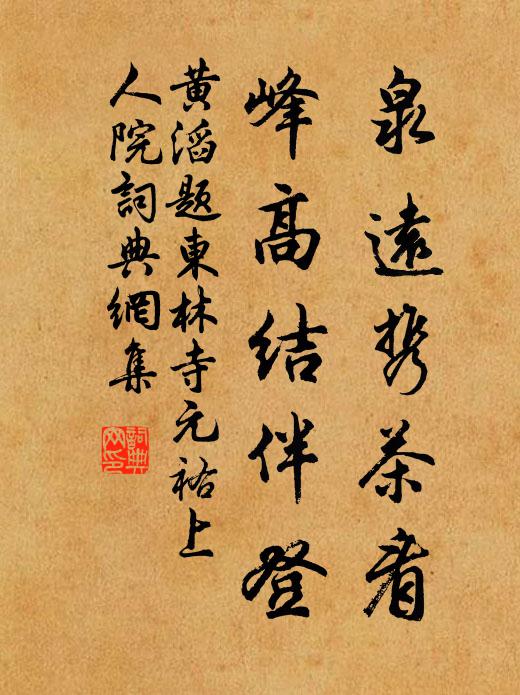 泉遠携茶看
峰高結伴登
黃滔題東林寺元祐上
人院詞典網集
詞典
网印